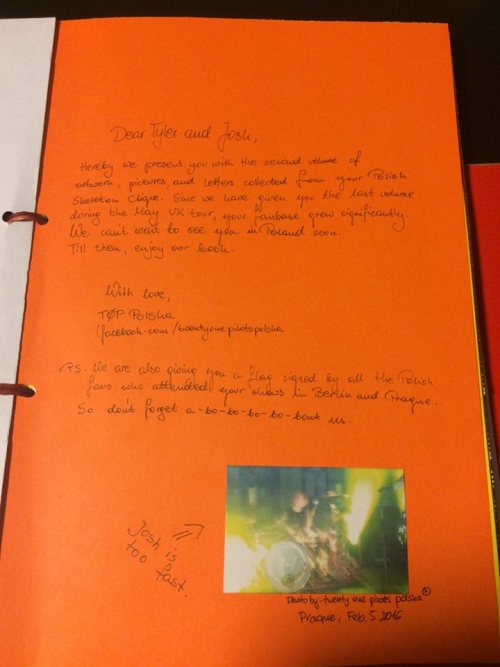 Dear Tyler and Josh,
Hereby we present you with the second volume of
artwork, pictures, and letters collected from your Polish
Skeleton Clique. Since we have given you the last volume
during the May UK tour, your fanbase grew significantly.
We can't wait to see you in Poland soon.
Till then, enjoy our book.
With love,
TØP Polska
(facebook.com/twentyonepilotspolska
P.S. We are also giving you a flag signed by all the Polish
fans who attended your shows in Berlin and Prague.
So don't forget a-bo-bo-bo-bo-bout us.
Josh is
too fast.
Photo by: twenty one pilots polska ®
Prague, Feb. 5, 2016